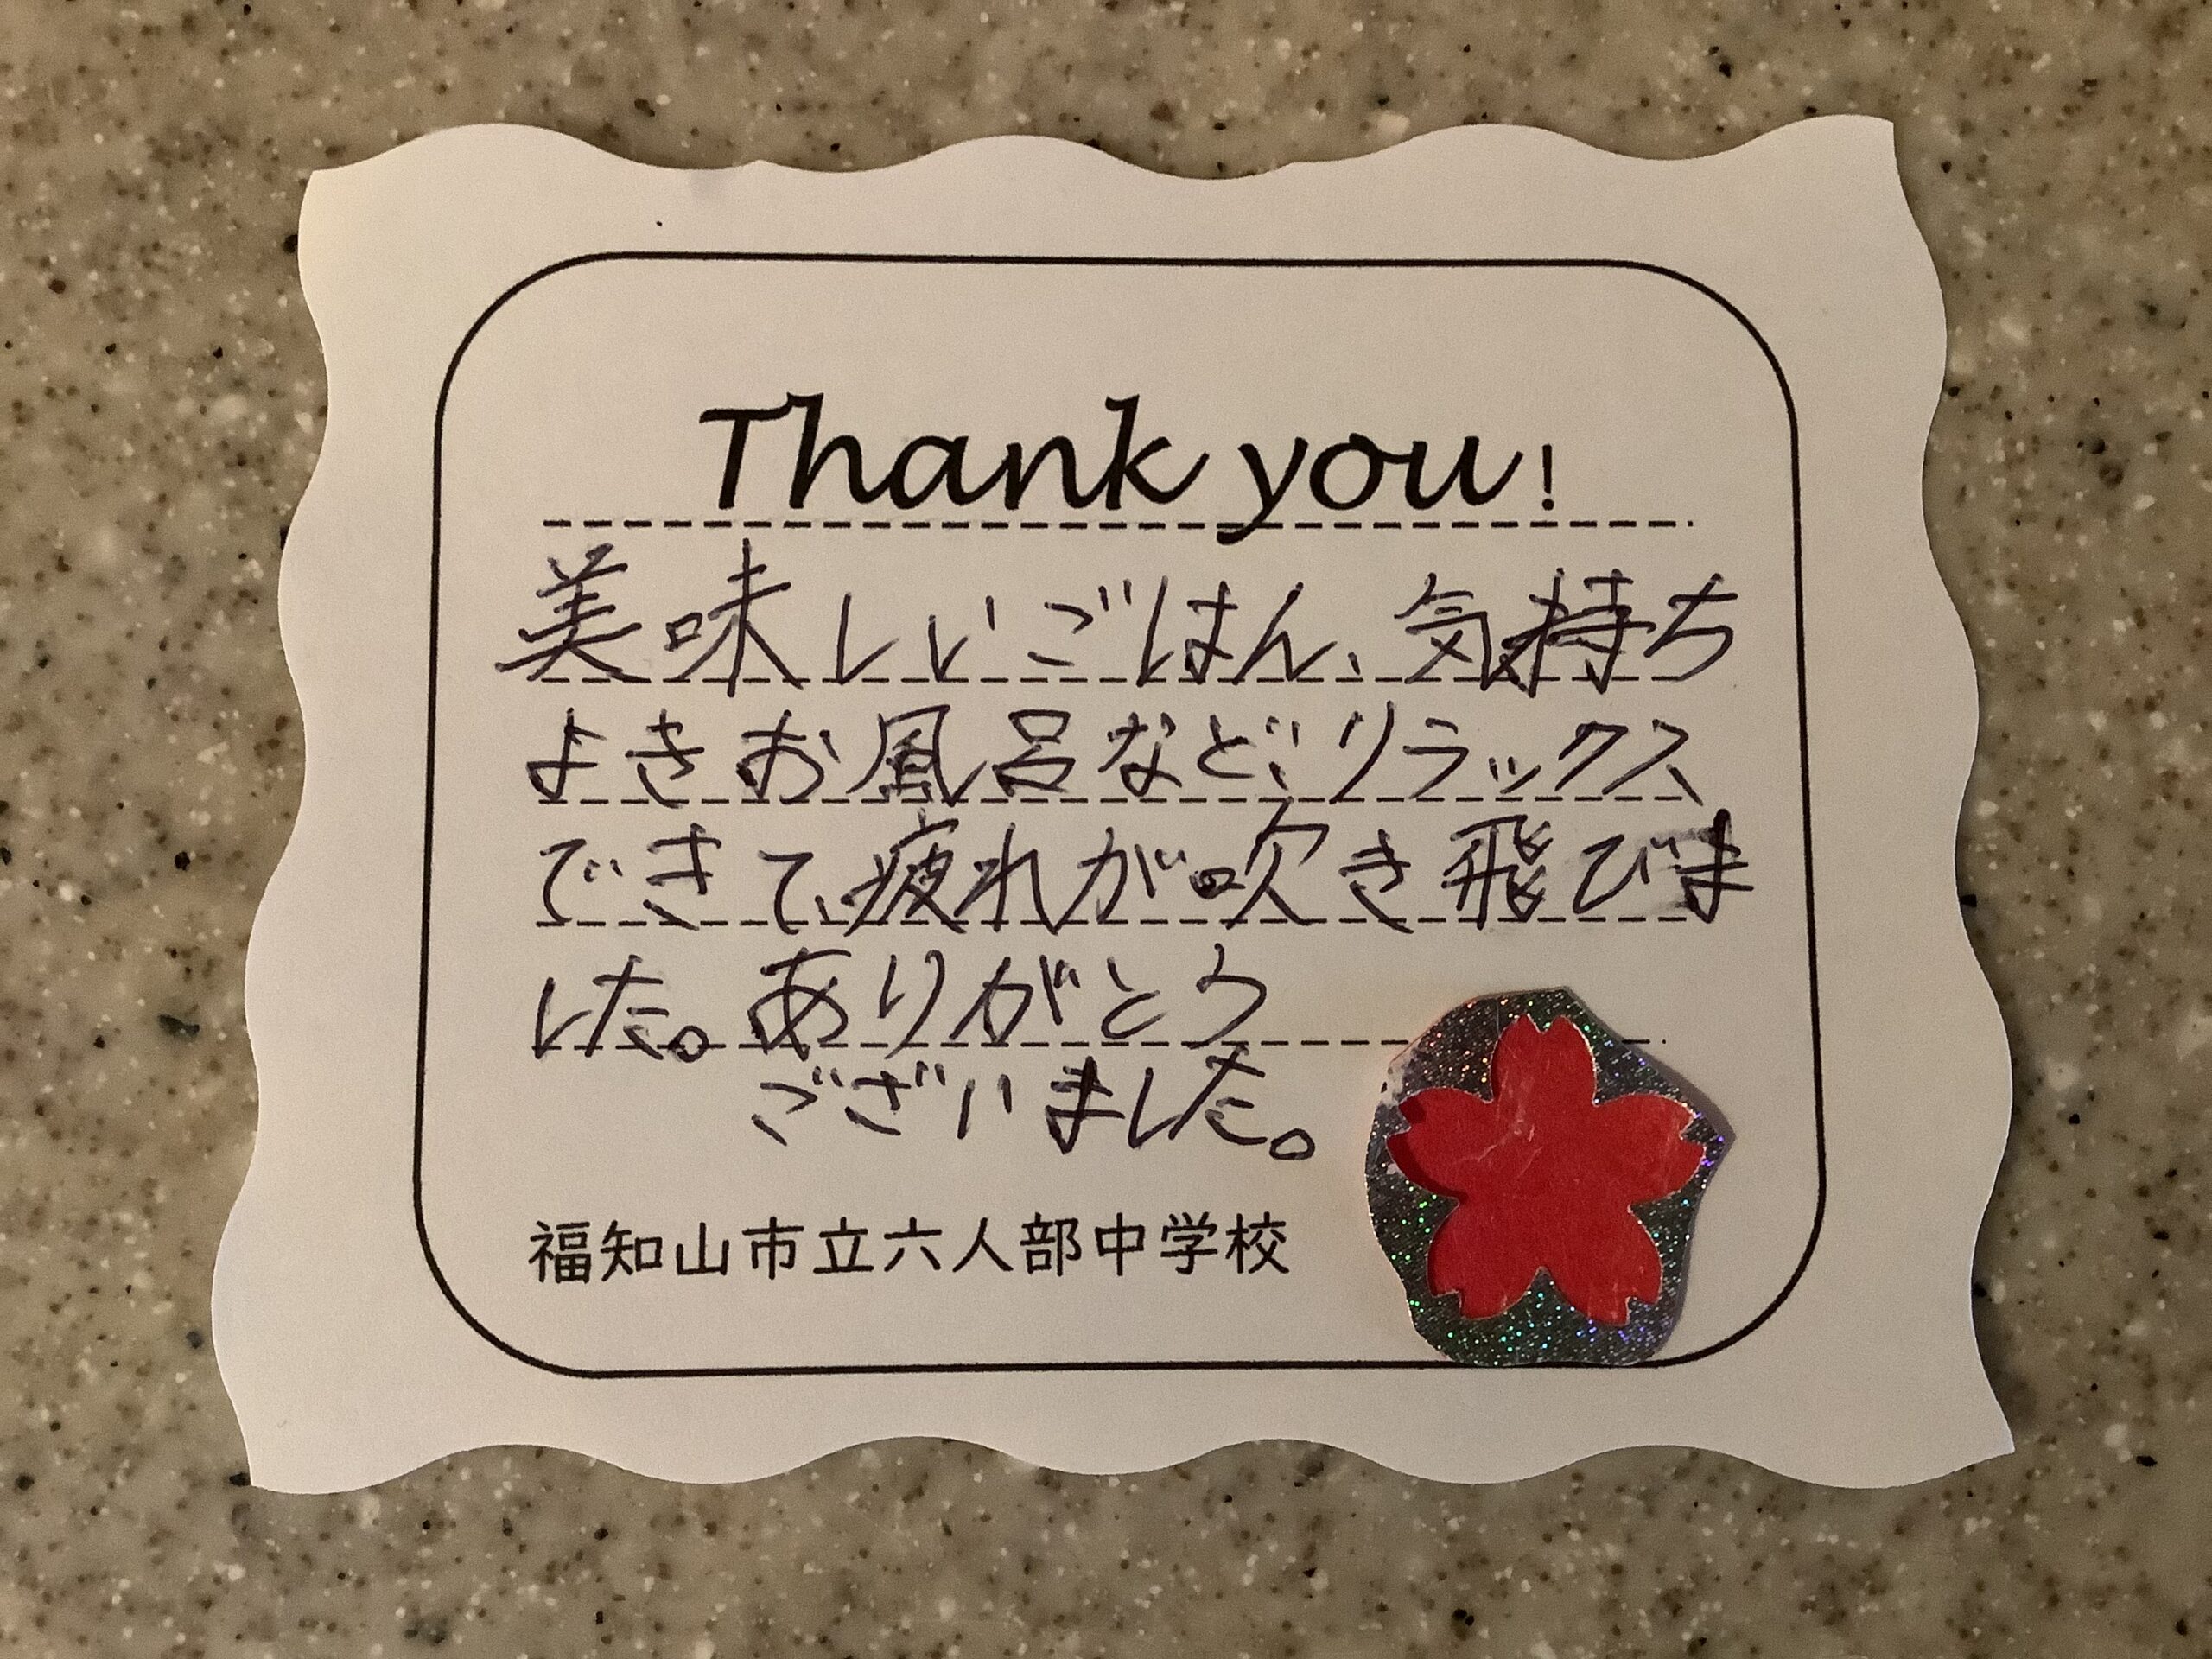 Thank you!
美味しいごはん、気持ち
よきお風呂など、リラックス
できて、疲れが吹き飛びま
した。ありがとう
ございました。
福知山市立六人部中学校